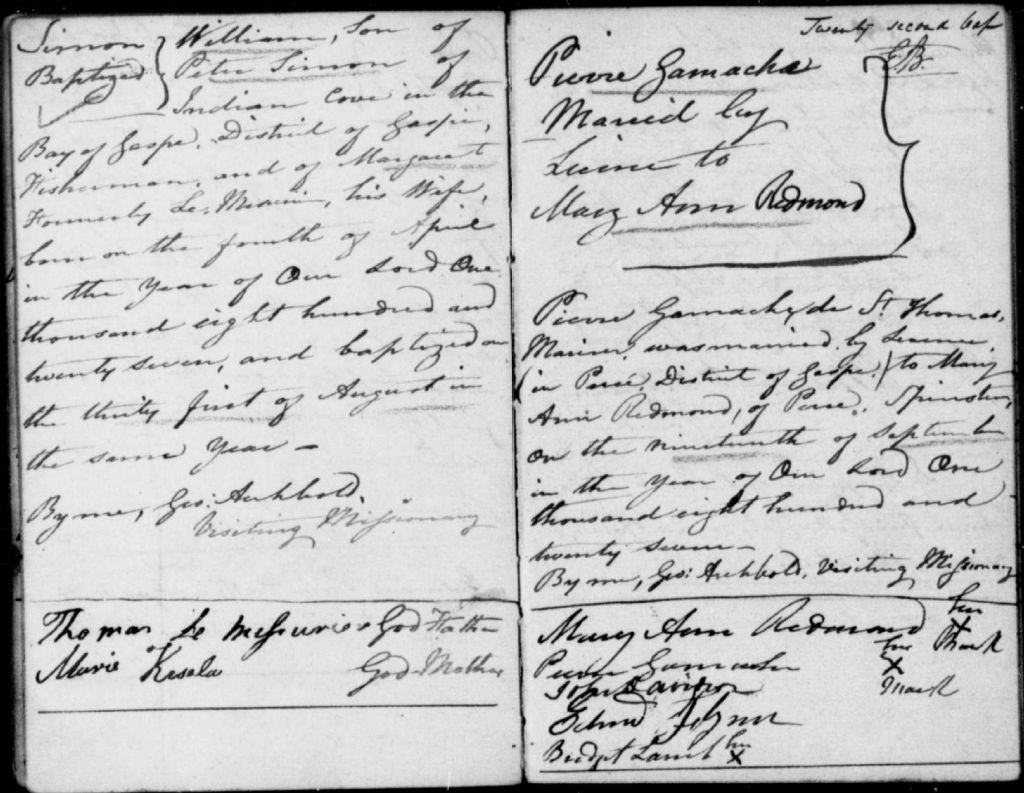 Simon
Baptized
William, Son of
Peter Simon of
Indian Cove in the
Bay of Gaspe, District of Gaspe,
Fisherman, and of Margaret
Formerly Le, his Wife,
born on the fourth of April
in the Year of Our Lord One
thousand eight hundred and
twenty seven, and baptized on
the thirty first of August in
the same Year —
By me, Geo: Archbold,
Visiting Missionary
Thomas Le Messurier God Father
Marie God Mother
Twenty second
Pierre Gamache
Maried by
to
Mary Ann Redmond
Pierre Gamache, de St. Thomas,
Mariner, was married, by
(in Perce, District of Gaspe,) to Mary
Ann Redmond, of Perce, Spinster,
on the nineteenth of September
in the Year of Our Lord One
thousand eight hundred and
twenty seven —
By me, Geo: Archbold, Visiting Missionary
Mary Ann Redmond her X Mark
Pierre Gamache his X mark
John
Flynn
Bridget Lamb her X